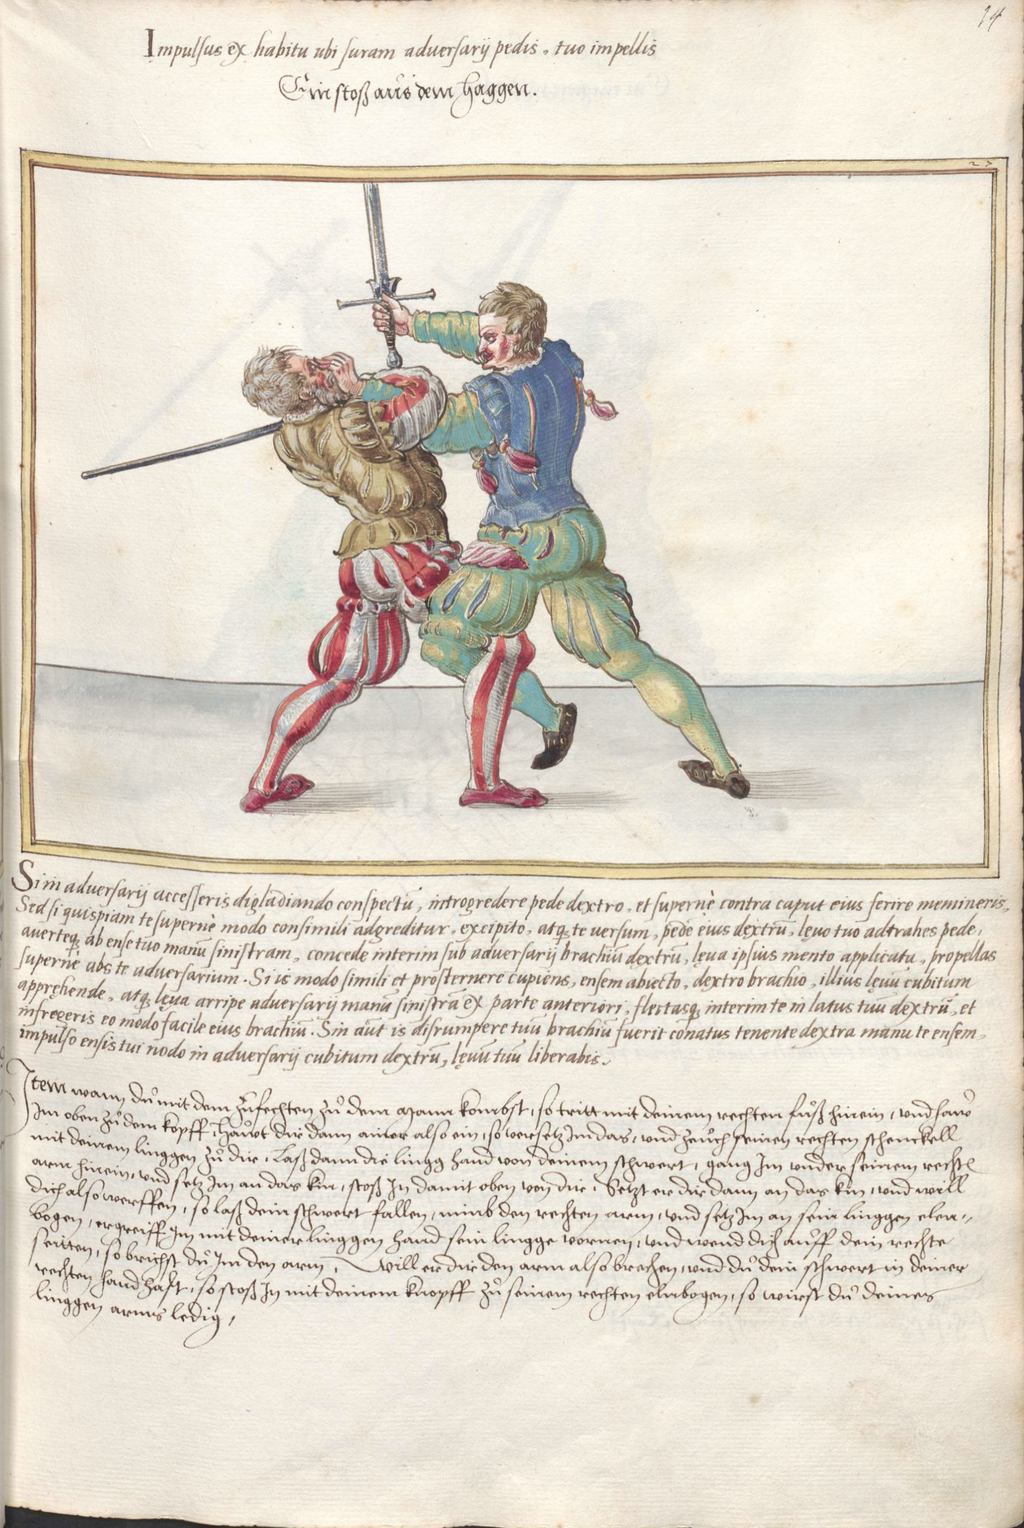 14
Impulsus ex habitu ubi suram adversarij pedis, tuo impellis
Ein stoß aus dem Haggen.
Sin in adversarij accesseris digladiando conspectū, introgredere pede dextro, et supernè contra caput eius ferire memineris,
Sed si quispiam te supernè modo consimili adgreditur, excipito, atq; te versum, pede eius dextrū, lęvo tuo adtrahes pede,
averteq; ab ense tuo manū sinistram, concede interim sub adversarij brachiū dextrū, lęva ipsius mento applicata, propellas
supernè abs te adversarium. Si is modo simili et prosternere cupiens, ensem abiecto, dextro brachio, illius lęvū cubitum
apprehende, atq; lęva arripe adversarij manū sinistrā ex parte anteriori, flectasq; interim te in latus tuū dextrū, et
infregeris eo modo facile eius brachiū. Sin aūt is disrumpere tuū brachiū fuerit conatus tenente dextra manu te ensem,
impulso ensis tui nodo in adversarij cubitum dextrū, lęvū tuū liberabis.
Item wann dů mit dem zůfechten zů dem Mann kombst, so tritt mit deinem rechten fůß hinein, und haw
Im oben zů dem kopff, hauwt dir dann ainer also ein, so versetz Im das, und zeuch seinen rechten schenckell
mit deinem linggen zů dir, Laß dann die lingg hand von deinem schwert, gang Im under seinem recht̄
arm hinein, und setz Im an das kin, stoß In damit oben von dir, Setzt er dir dann an das kin, und will
dich also werffen, so laß dein schwert fallen, nimb den rechten arm, und setz Im an sein linggen elen,,
bogen, ergreiff Im mit deiner linggen hand sein lingge vornen, und wend dich auff dein rechte
seitten, so brichst dů Im den arm, Will er dir den arm also brechen, und dů dein schwert in deiner
rechten hand hast, so stoß In mit deinem knopff zů seinem rechten elnbogen, so wirst dů deines
linggen arms ledig,